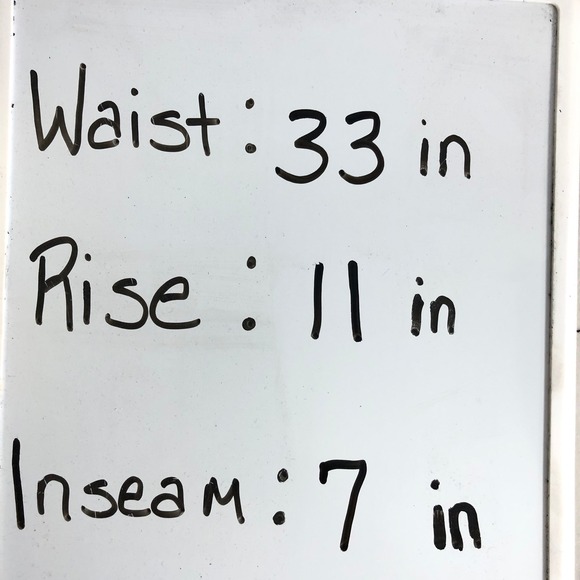 Waist: 33 in
Rise: 11 in
Inseam: 7 in